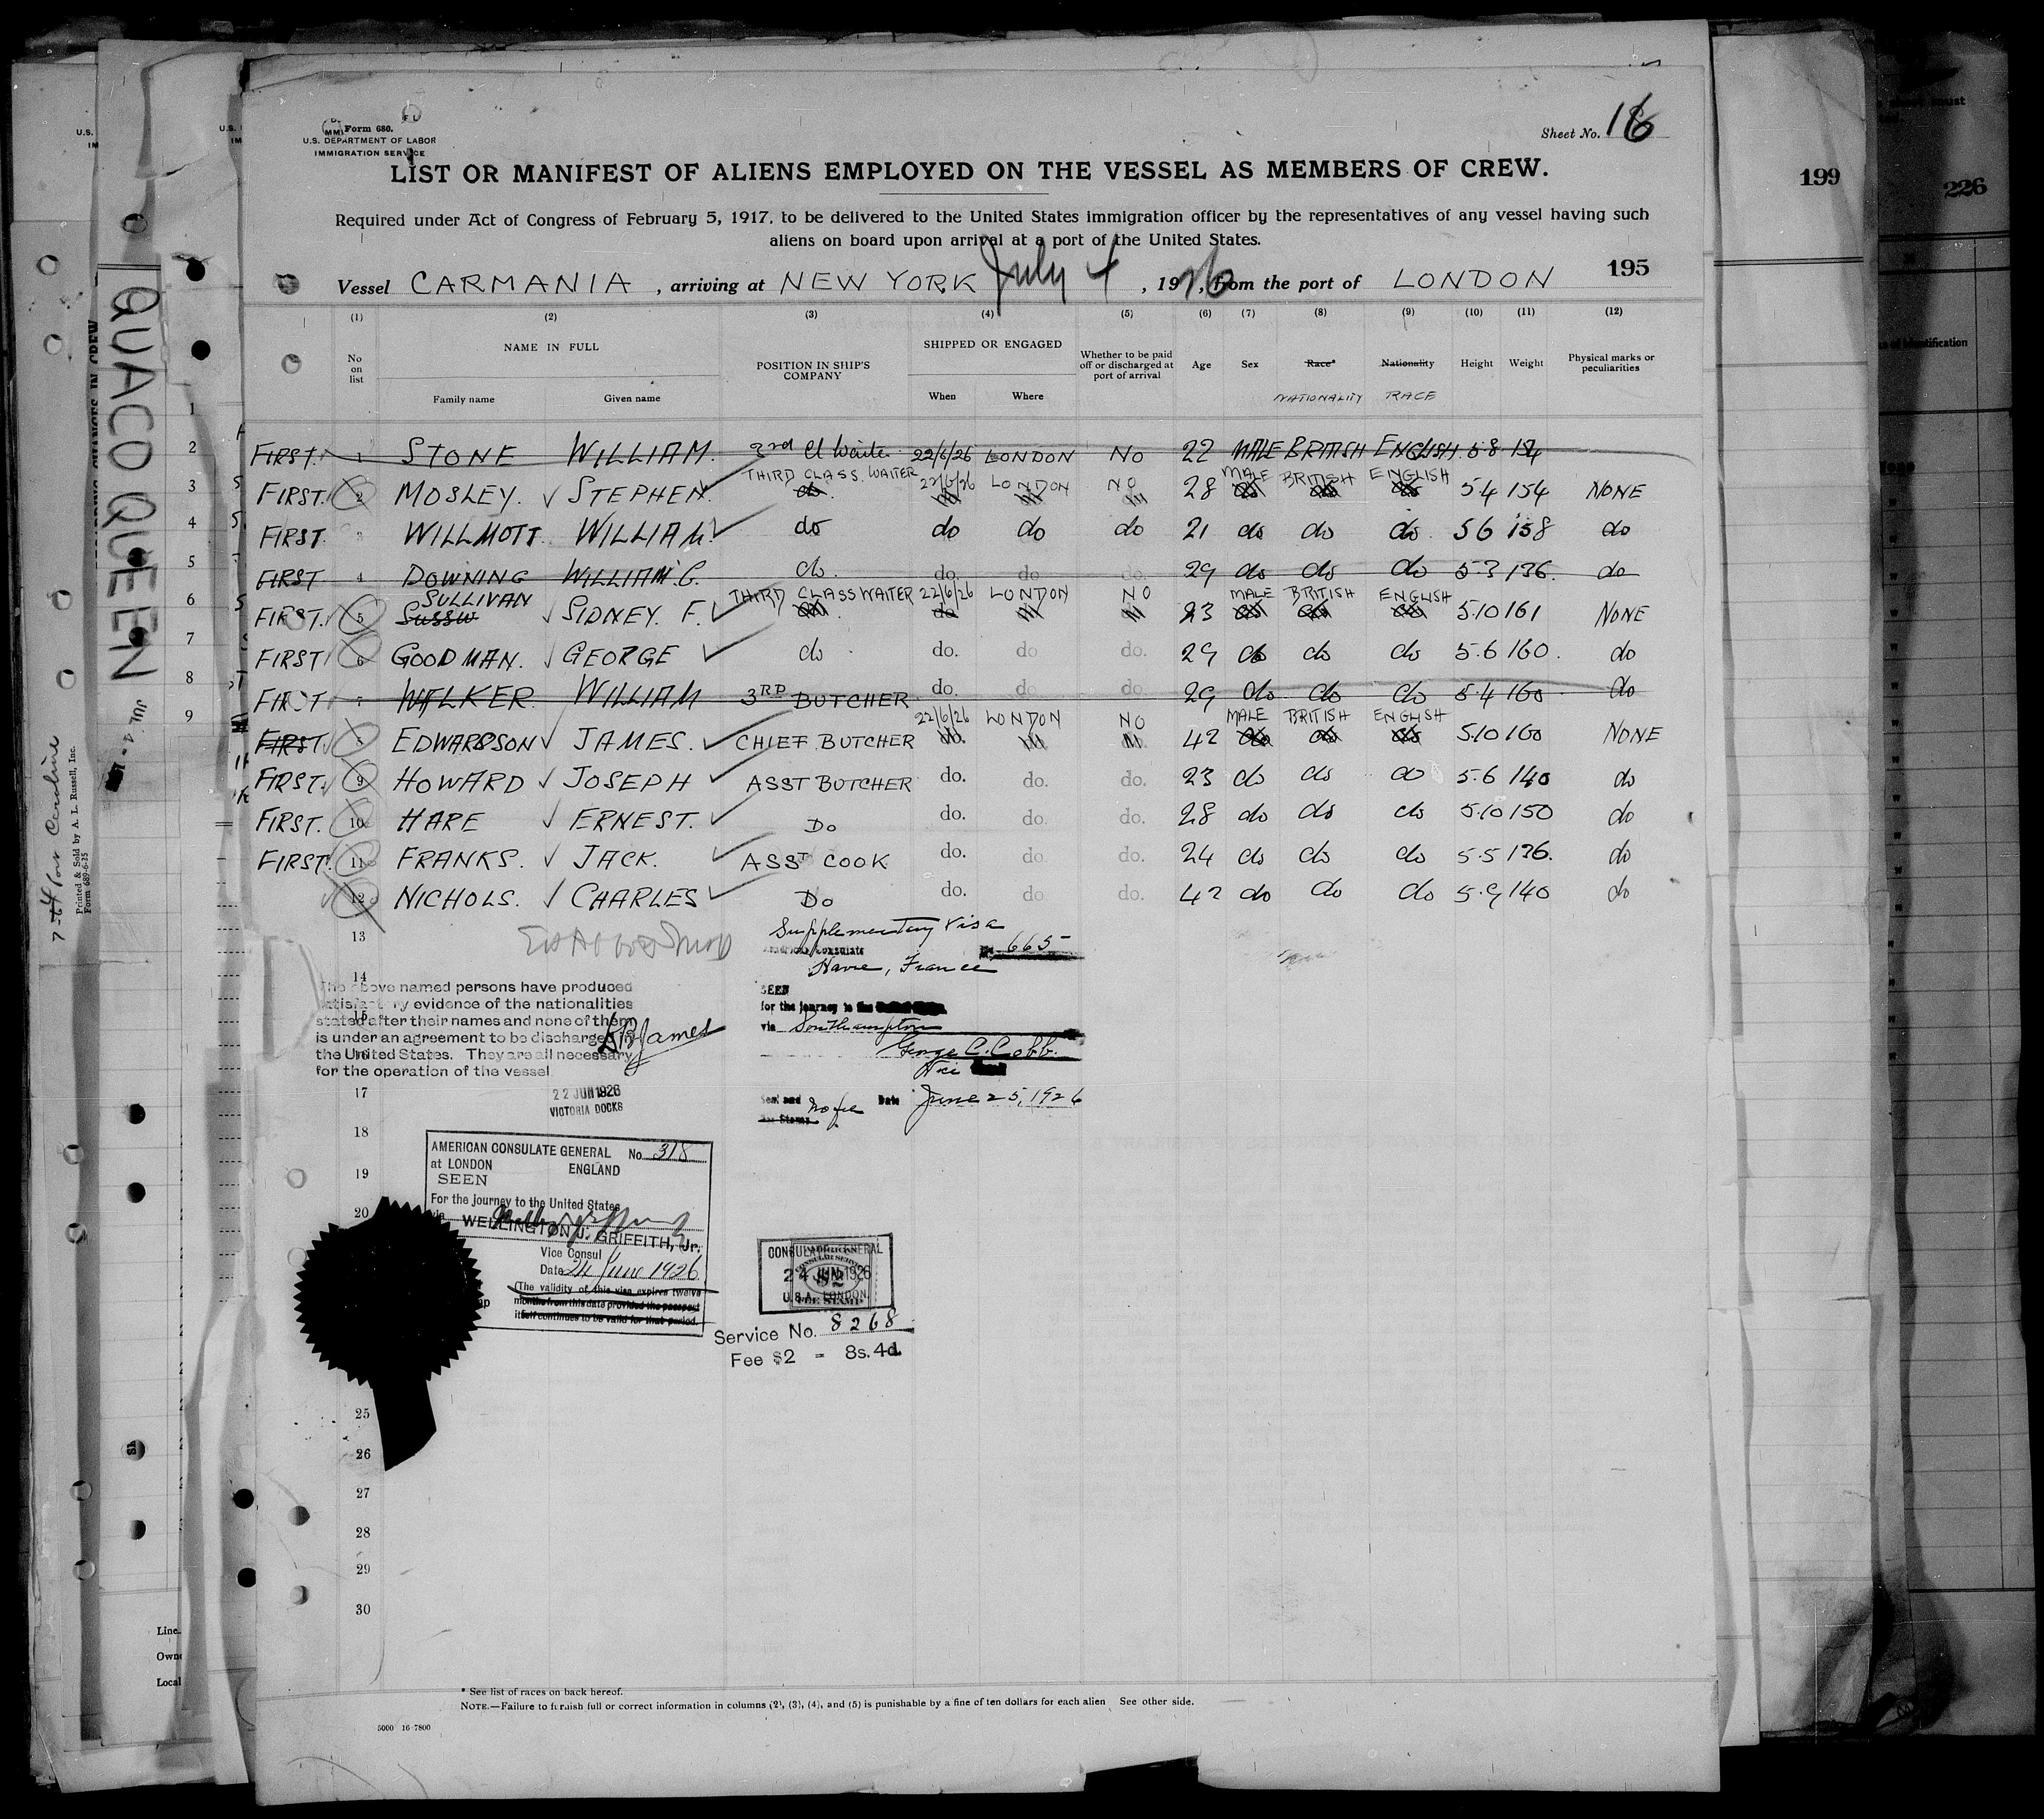 Form 680.
U.S. DEPARTMENT OF LABOR
IMMIGRATION SERVICE
Sheet No. 16
LIST OR MANIFEST OF ALIENS EMPLOYED ON THE VESSEL AS MEMBERS OF CREW.
Required under Act of Congress of February 5, 1917, to be delivered to the United States immigration officer by the representatives of any vessel having such
aliens on board upon arrival at a port of the United States.
195
Vessel CARMANIA, arriving at NEW YORK July 4, 1926, from the port of LONDON
(1) (2) (3) (4) (5) (6) (7) (8) (9) (10) (11) (12)
No on list NAME IN FULL Family name Given name POSITION IN SHIP'S COMPANY SHIPPED OR ENGAGED When Where Whether to be paid off or discharged at port of arrival Age Sex Race* Nationality Height Weight Physical marks or peculiarities
NATIONALITY RACE
FIRST. 1 STONE WILLIAM. 3rd Cl Waiter 22/6/26 LONDON NO 22 MALE BRITISH ENGLISH. 5.8 154
THIRD CLASS WAITER 22/6/26 LONDON NO MALE BRITISH ENGLISH
FIRST. 2 MOSLEY. STEPHEN. do 28 54 154 NONE
FIRST. 3 WILLMOTT. WILLIAM. do do do do 21 do do do. 56 158 do
FIRST 4 DOWNING WILLIAM C. do. do. do do. 29 do do do 5.3 136. do
SULLIVAN THIRD CLASS WAITER 22/6/26 LONDON NO MALE BRITISH ENGLISH
FIRST. 5 SIDNEY. F. 23 5.10 161 NONE
FIRST 6 GOODMAN. GEORGE do do. do do. 29 do do do 5.6 160. do
FIRST 7 WALKER. WILLIAM 3RD BUTCHER. do. do do. 29 do. do do 5.4 160 do
22/6/26 LONDON NO MALE BRITISH ENGLISH
FIRST. 8 EDWARDSON JAMES. CHIEF BUTCHER do. 42 5.10 160 NONE
FIRST. 9 HOWARD JOSEPH ASST BUTCHER do. do. do. 23 do do do 5.6 140 do
FIRST. 10 HARE ERNEST. DO do. do. do. 28 do do do 5.10 150 do
FIRST. 11 FRANKS. JACK. ASST COOK do. do. do. 24 do do do 5.5 136. do
12 NICHOLS. CHARLES DO do. do do. 42 do do do 5.9 140 do
13
Supplementary Visa
American Consulate No. 665
Havre, France
14
15
16
The above named persons have produced
satisfactory evidence of the nationalities
stated after their names and none of them
is under an agreement to be discharged in
the United States. They are all necessary
for the operation of the vessel
SEEN
for the journey to the
via Southampton
George C. Cobb.
Vice
17
22 JUN 1926
VICTORIA DOCKS
Seal and No fee Date June 25, 1926
Fee Stamp
18
AMERICAN CONSULATE GENERAL No. 318
at LONDON ENGLAND
19
SEEN
For the journey to the United States
20
via
WELLINGTON J. GRIFFITH, Jr.
Vice Consul
Date 24 June 1926
(The validity of this visa expires twelve
months from this date provided the passport
itself continues to be valid for that period.
CONSULATE GENERAL
24 JUN 1926
U.S.A. LONDON.
FEE STAMP
Service No. 8268
Fee $2 = 8s. 4d.
25
26
27
28
29
30
* See list of races on back hereof.
NOTE.—Failure to furnish full or correct information in columns (2), (3), (4), and (5) is punishable by a fine of ten dollars for each alien See other side.
5000 16-7800
QUACO QUEEN
JUL 2 -
Printed & Sold by A. L. Russell, Inc.
Form 689-6-25
U.S.
IM
U.S.
IM
1
2
3
4
5
6
7
8
9
Line
Owne
Local
199
226